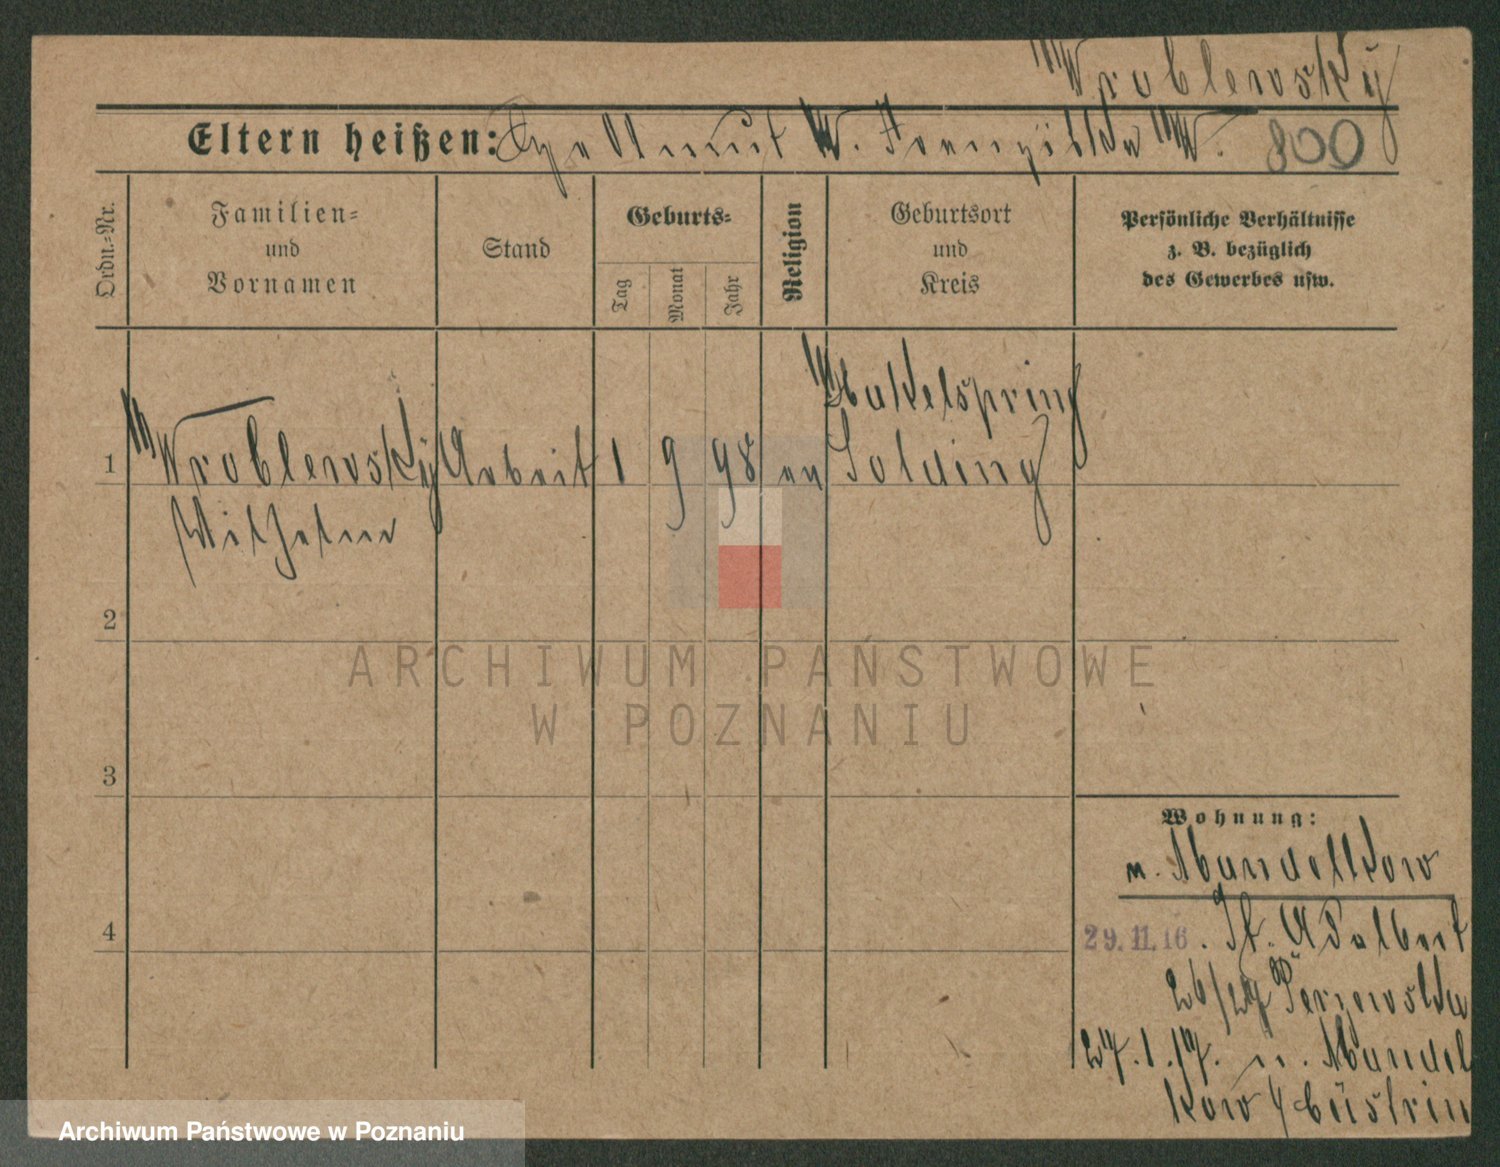 Wroblewsky
Eltern heißen: W. W. 800
Ordn.-Nr.
Familien-
und
Vornamen
Stand
Geburts-
Tag
Monat
Jahr
Religion
Geburtsort
und
Kreis
Persönliche Verhältnisse
z. B. bezüglich
des Gewerbes usw.
1 Wroblewsky Arbeit 1 9 98
Wilhelm
2
3
4
Wohnung:
n. Mandelkow
29.11.16. St. Adalbert
27.1.17. n. Mandel
kow Cüstrin
ARCHIWUM PAŃSTWOWE
W POZNANIU
Archiwum Państwowe w Poznaniu